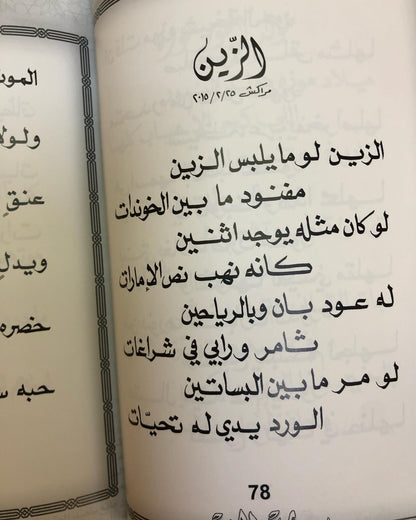 الزّين
مراكش ٢٠١٥/٢/٢٥
الزين لو ما يلبس الزين
مفنود ما بين الخوندات
لو كان مثله يوجد اثنين
كانه نهب نص الإمارات
له عود بان وبالرياحين
ثامر ورابي في شراغات
لو مر ما بين البساتين
الورد يدي له تحيّات
78
ولولا
عنقٍ
ويدلـ
خضره
حبه